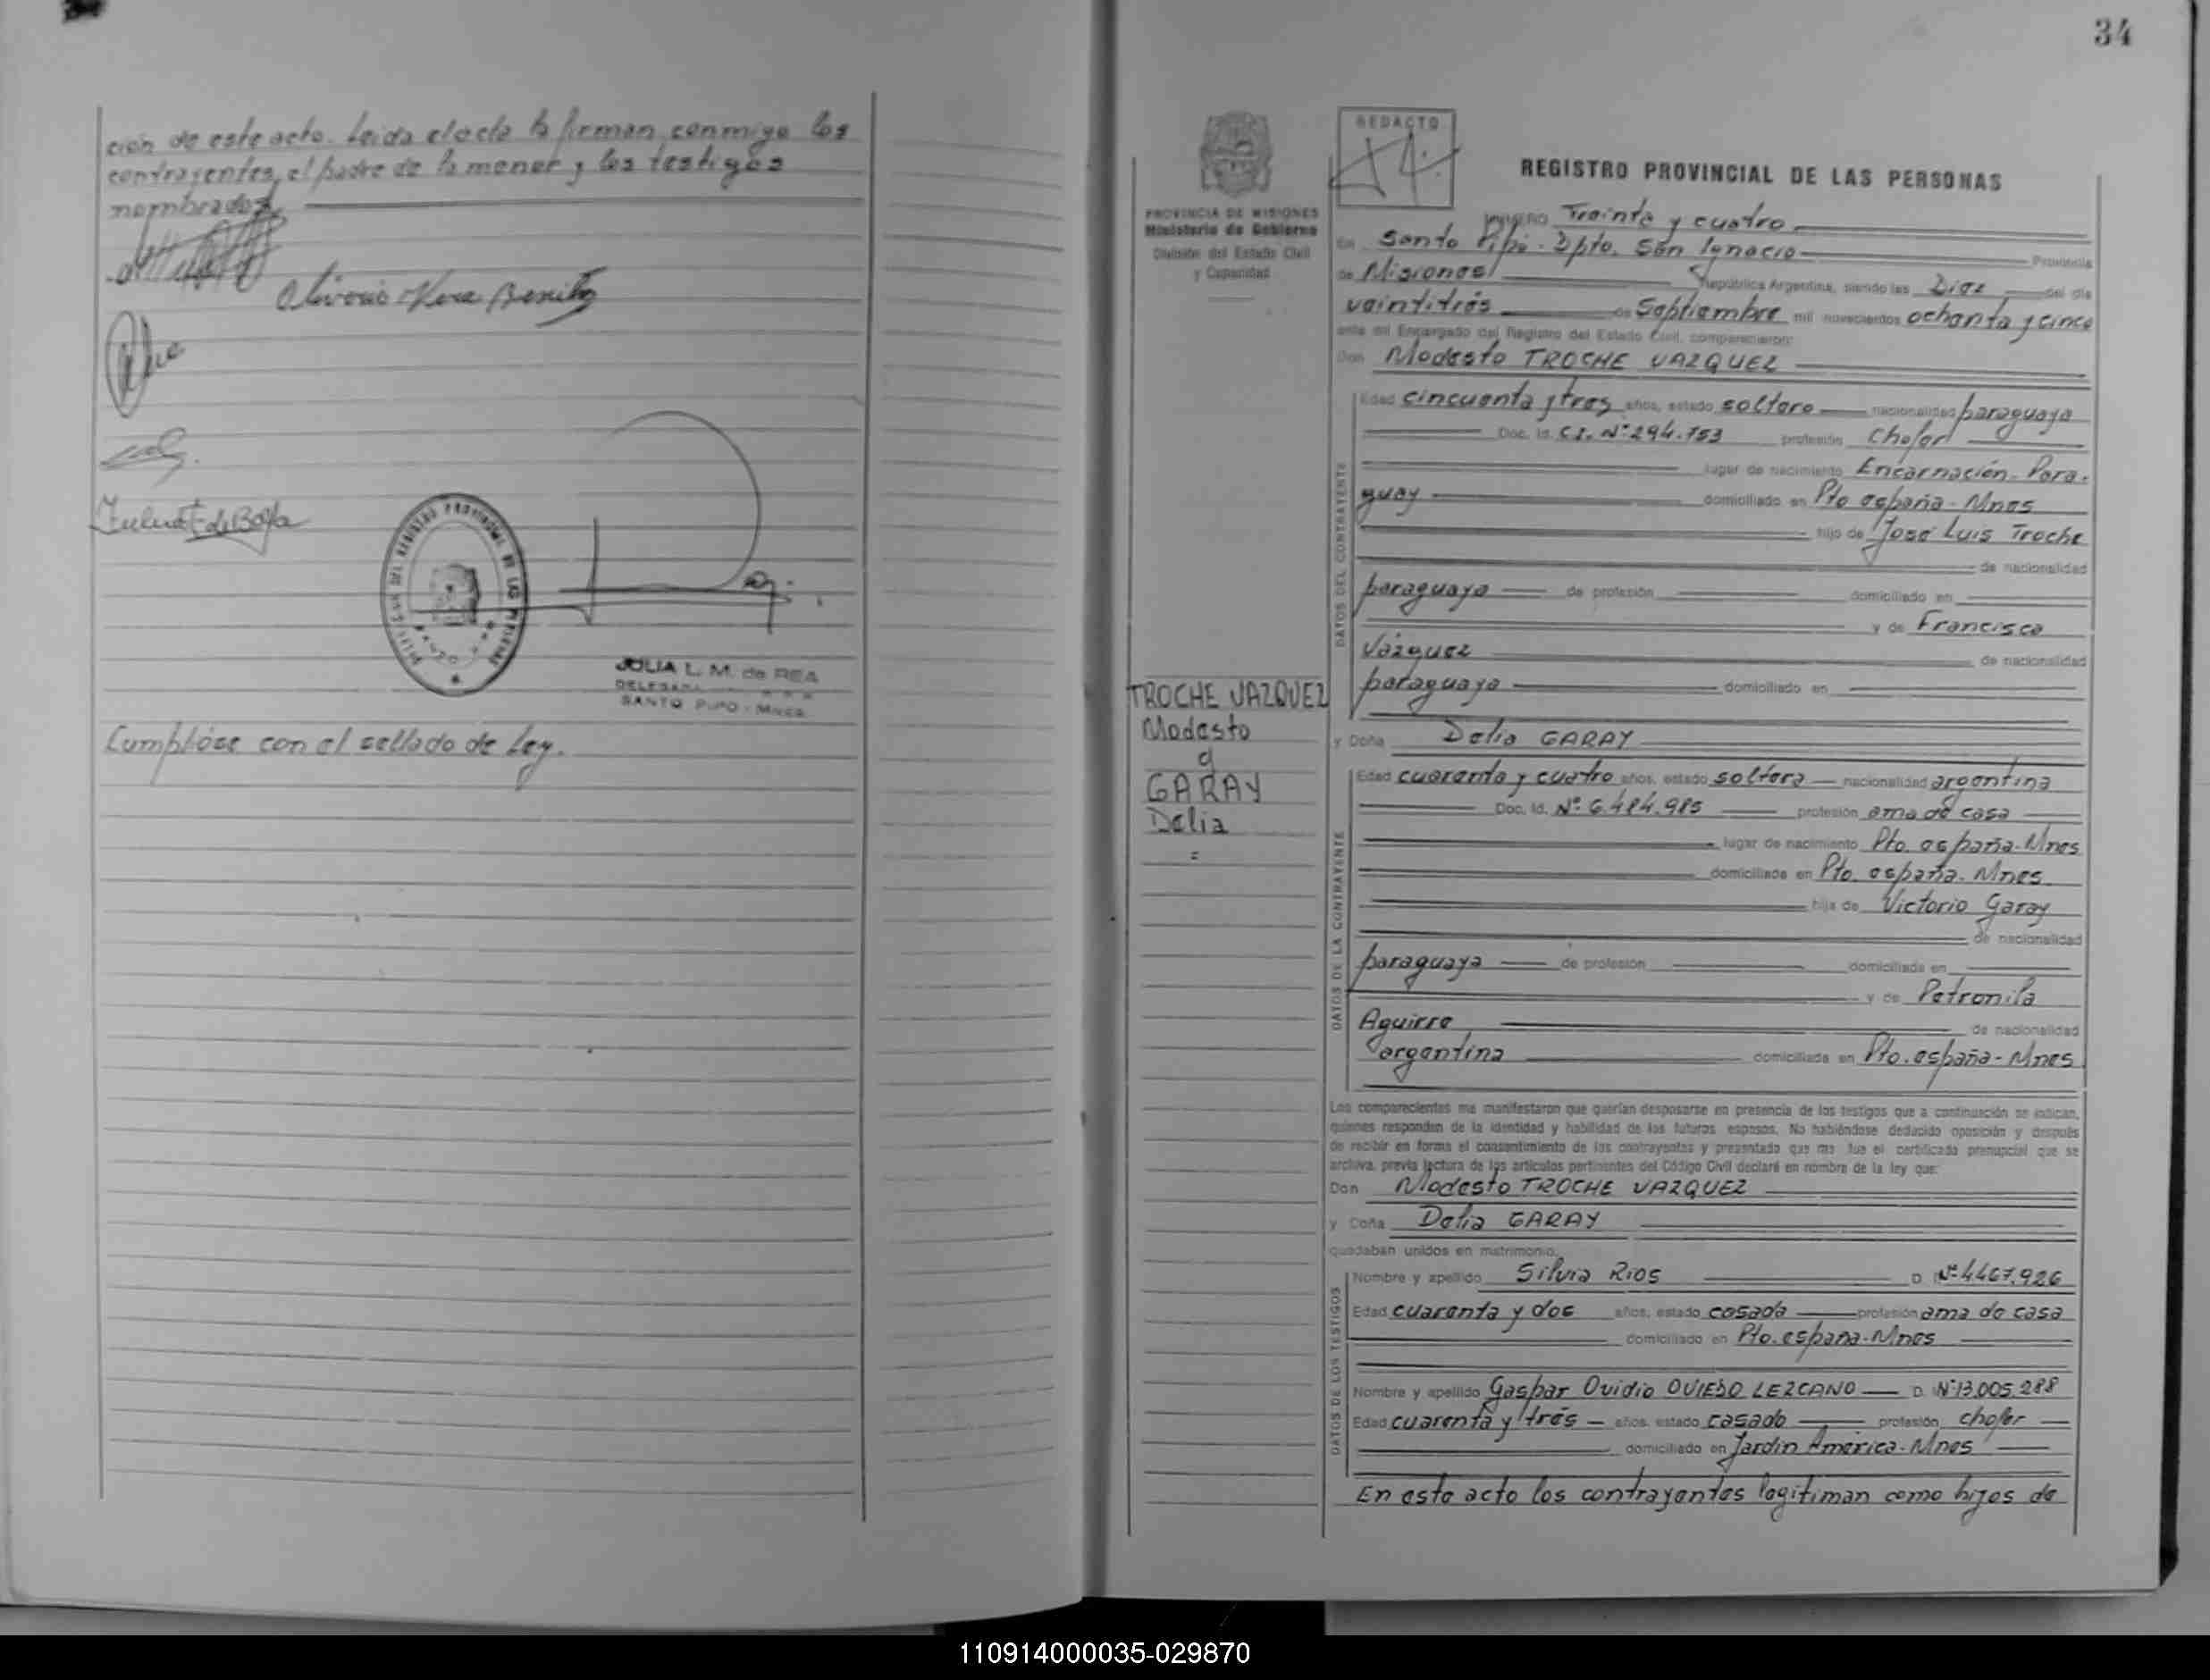 ción de este acto. Leida el acta la firman conmigo los
contrayentes, el padre de la menor y los testigos
nombrados.
Oliverio Vera Benitez
Zulma F. de Boya
JULIA L. M. de REA
SANTO PIPO - Mnes.
Cumplióse con el sellado de Ley.
34
PROVINCIA DE MISIONES
Ministerio de Gobierno
División del Estado Civil
y Capacidad
TROCHE VAZQUEZ
Modesto
y
GARAY
Delia
=
REDACTO
REGISTRO PROVINCIAL DE LAS PERSONAS
NUMERO Treinta y cuatro
En Santo Pipó - Dpto. San Ignacio Provincia
de Misiones República Argentina, siendo las Diez del día
veintitrés de Septiembre mil novecientos ochenta y cinco
ante mí Encargado del Registro del Estado Civil, comparecieron:
Don Modesto TROCHE VAZQUEZ
DATOS DEL CONTRAYENTE
Edad cincuenta y tres años, estado soltero nacionalidad paraguaya
Doc. Id. C.I. Nº 294.753 profesión chofer
lugar de nacimiento Encarnación - Para-
guay domiciliado en Pto españa - Mnes
hijo de José Luis Troche
de nacionalidad
paraguaya de profesión domiciliado en
y de Francisca
Vázquez de nacionalidad
paraguaya domiciliado en
y Doña Delia GARAY
DATOS DE LA CONTRAYENTE
Edad cuarenta y cuatro años, estado soltera nacionalidad argentina
Doc. Id. Nº 6.484.985 profesión ama de casa
lugar de nacimiento Pto. españa - Mnes
domiciliada en Pto. españa - Mnes
hija de Victorio Garay
de nacionalidad
paraguaya de profesión domiciliada en
y de Petronila
Aguirre de nacionalidad
argentina domiciliada en Pto. españa - Mnes
Los comparecientes me manifestaron que querían desposarse en presencia de los testigos que a continuación se indican,
quienes responden de la identidad y habilidad de los futuros esposos. No habiéndose deducido oposición y después
de recibir en forma el consentimiento de los contrayentes y presentado que me fue el certificado prenupcial que se
archiva, previa lectura de los artículos pertinentes del Código Civil declaré en nombre de la ley que:
Don Modesto TROCHE VAZQUEZ
y Doña Delia GARAY
quedaban unidos en matrimonio.
DATOS DE LOS TESTIGOS
Nombre y apellido Silvia RIOS D. Nº 4467.926
Edad cuarenta y dos años, estado casada profesión ama de casa
domiciliado en Pto. españa - Mnes
Nombre y apellido Gaspar Ovidio OVIEDO LEZCANO D. Nº 13.005.288
Edad cuarenta y trés años, estado casado profesión chofer
domiciliado en Jardin America - Mnes
En este acto los contrayentes legitiman como hijos de
110914000035-029870